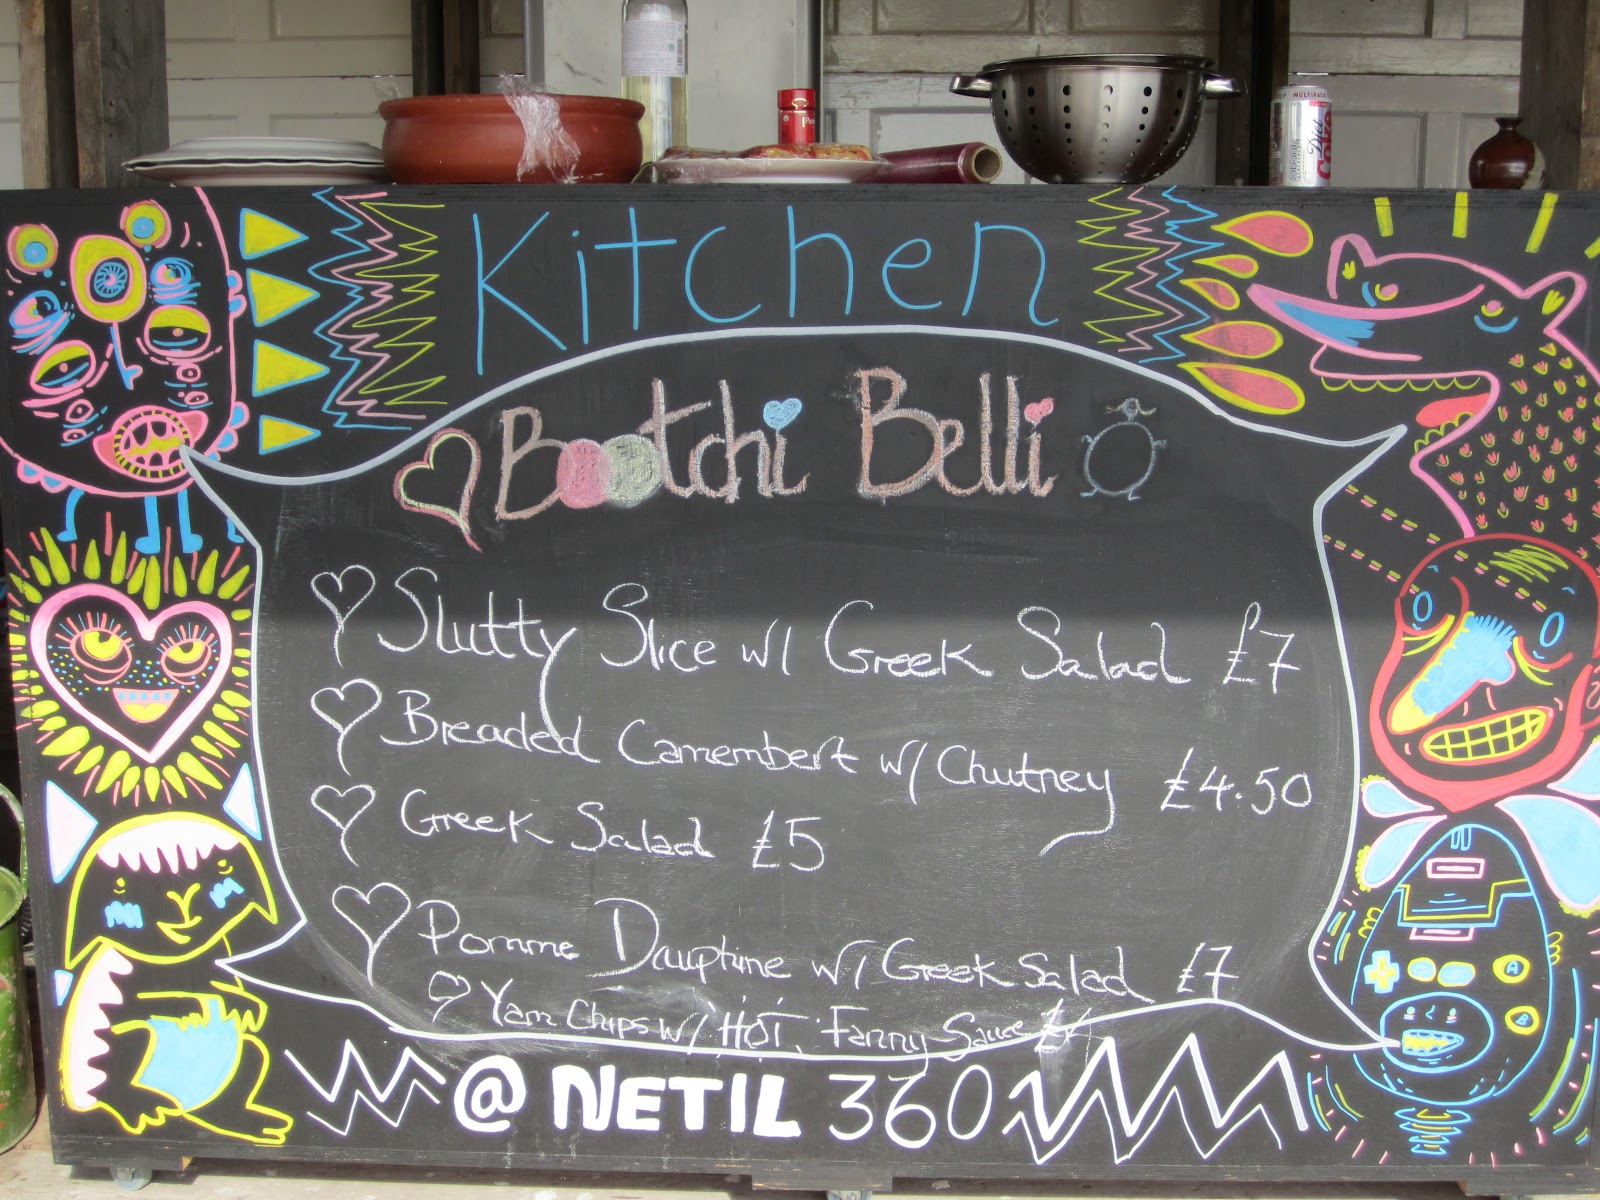 MULTIPACK
Diet
Coke
Kitchen
Bootchi Belli
Slutty Slice w/ Greek Salad £7
Breaded Camembert w/ Chutney £4.50
Greek Salad £5
Pomme Dauphine w/ Greek Salad £7
Yam Chips w/ HOT Fanny Sauce £4
@ NETIL 360
A
B